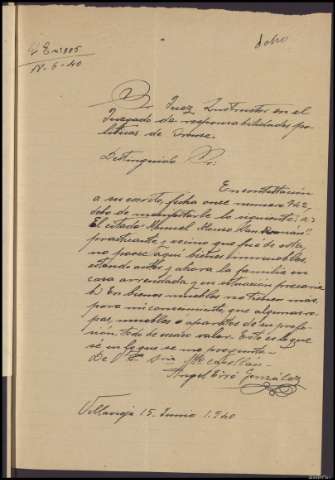 IV-6-40
Sr Juez Instructor en el
Juzgado de responsabilidades po-
líticas de Orense.
Distinguido Sr:
En contestación
a su escrito, fecha once número 942,
debo de manifestarle lo siguiente: a)
El citado Manuel
practicante y vecino que fué de esta,
no posee aquí bienes inmuebles,
estando antes y ahora la familia en
casa arrendada y en situación precaria
b) En bienes muebles no tienen mas,
para mi conocimiento que algunas ro-
pas, muebles o aparatos de su profe-
sión todo de escaso valor. Esto es lo que
sé en lo que se me pregunta.
De V. S.
Angel González
Villarioja 15 Junio 1940